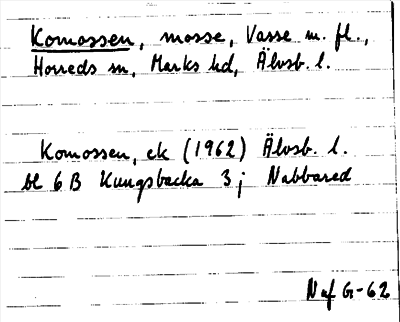 Komossen, mosse, Vasse m. fl.,
Horreds sn, Marks hd, Älvsb. l.
Komossen, ek (1962) Älvsb. l.
bl 6 B Kungsbacka 3 j Nabbared
Naf G-62